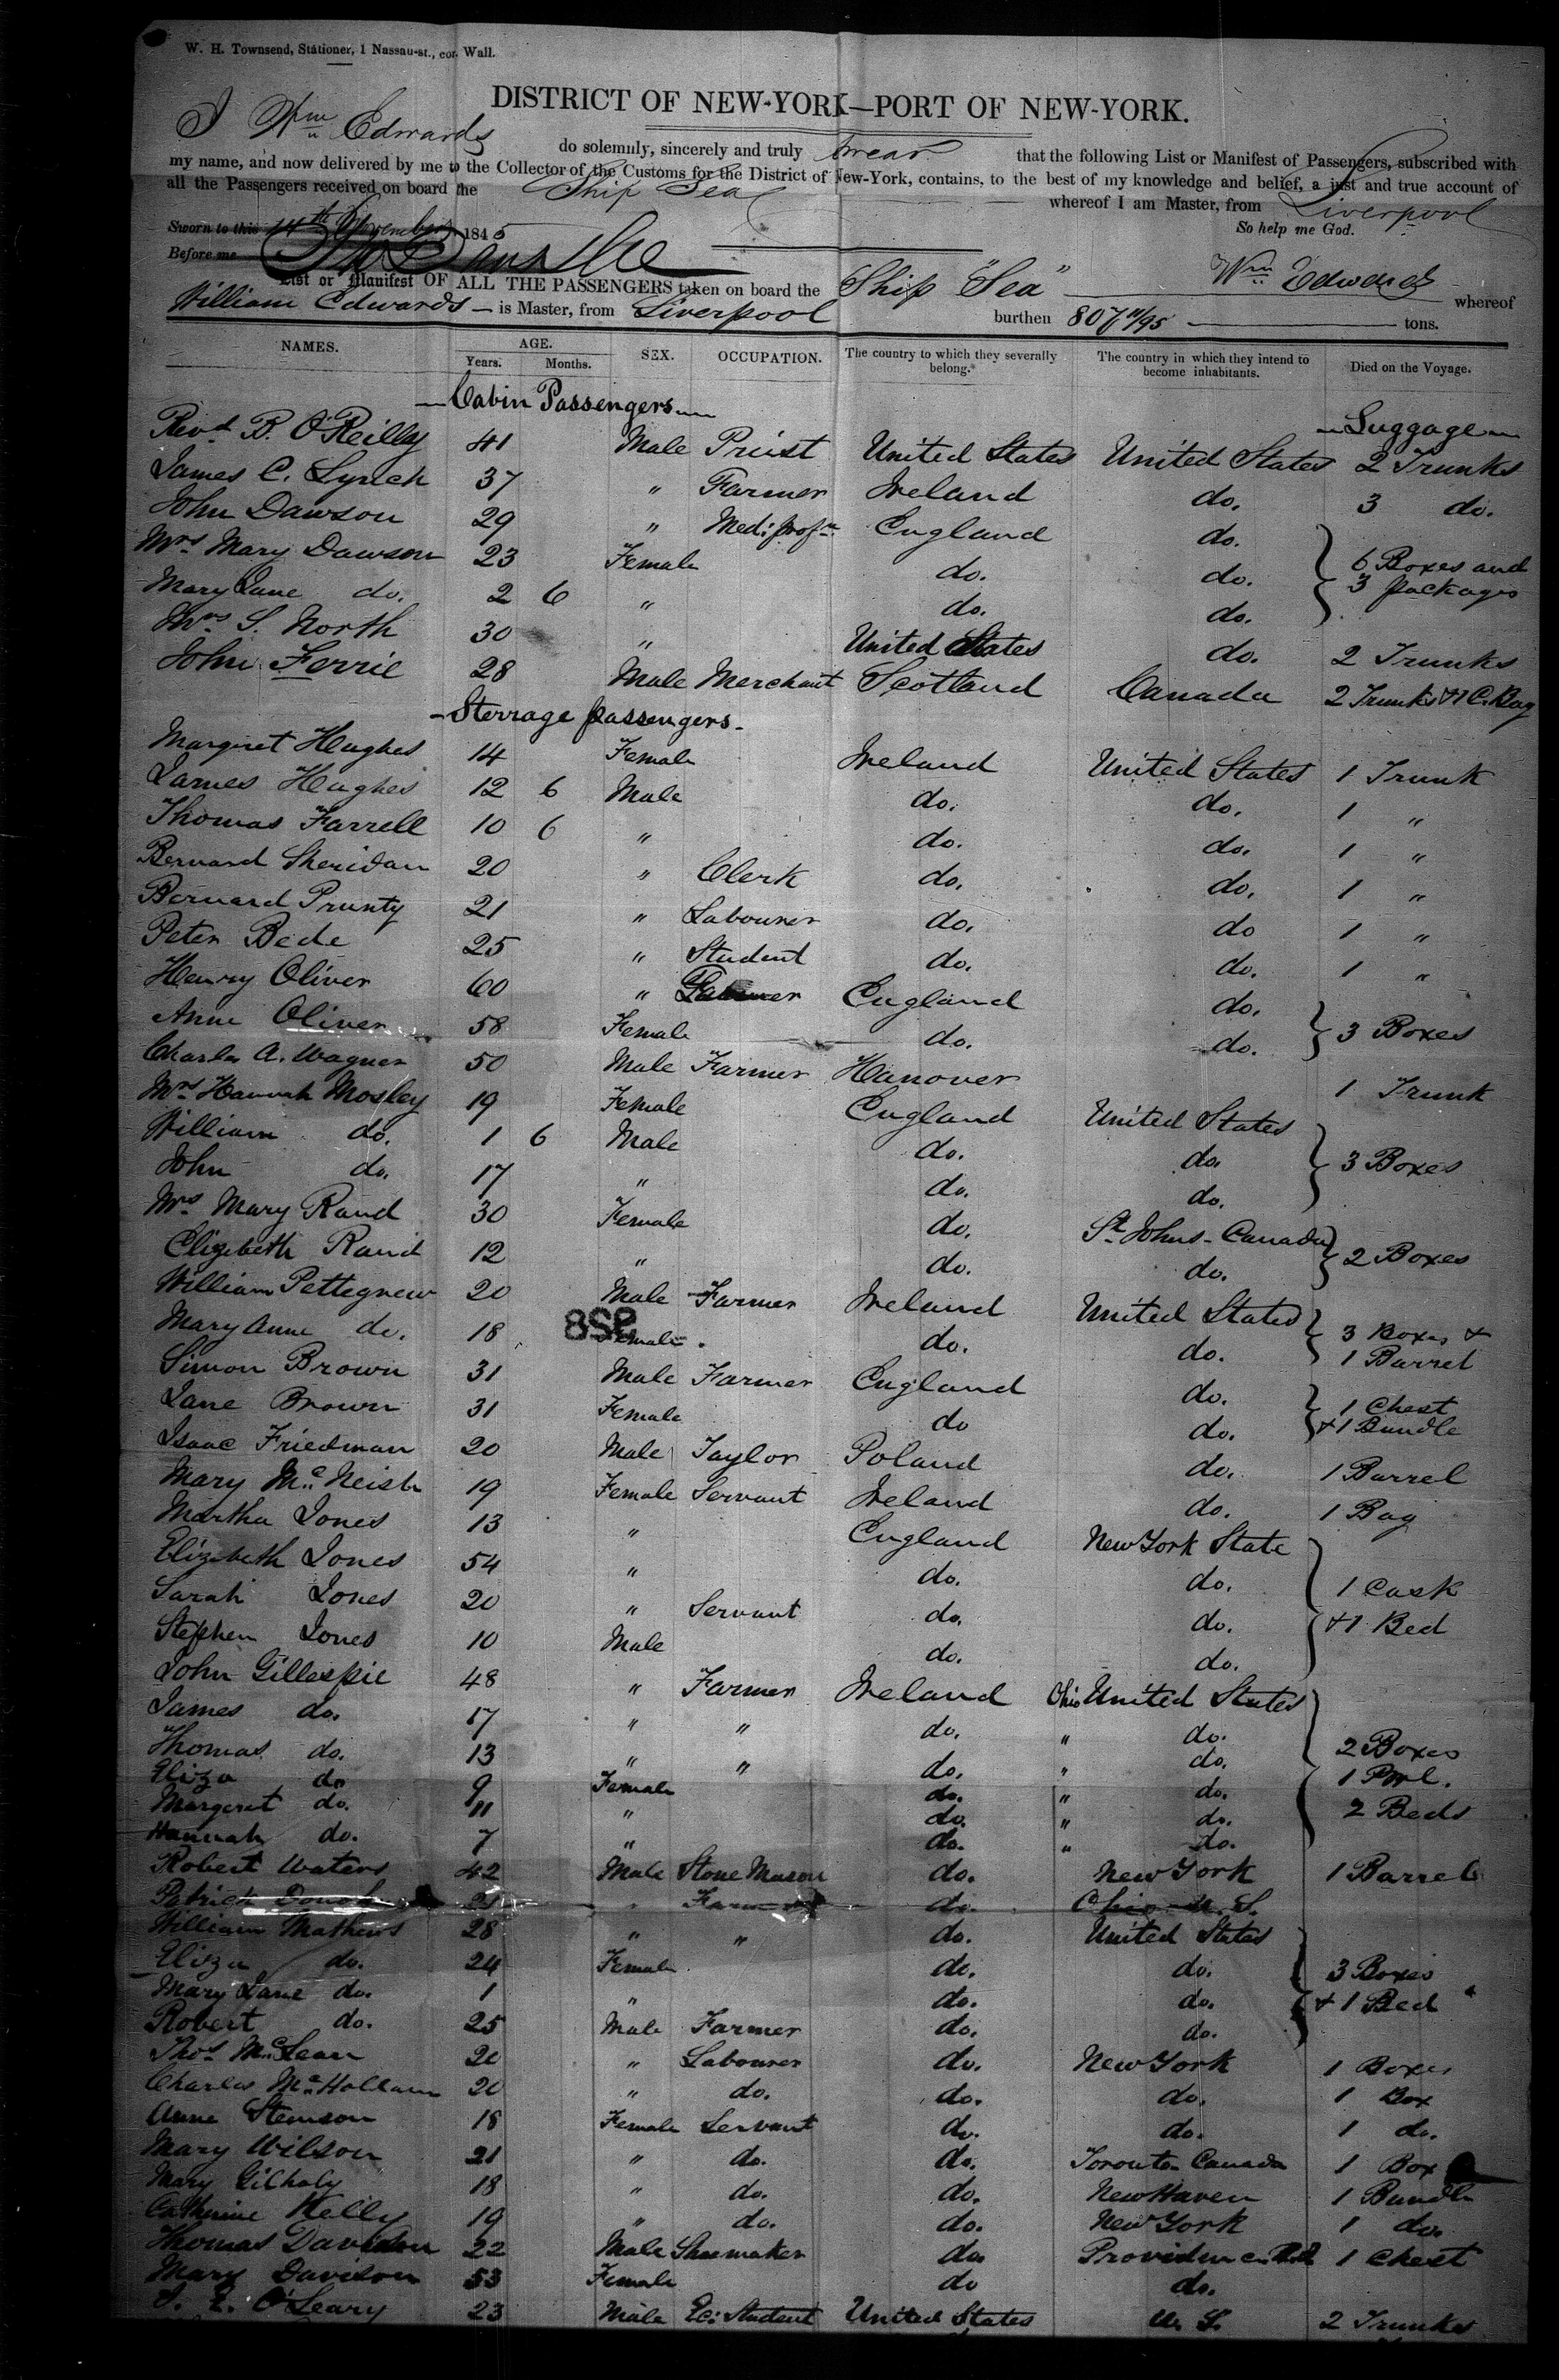 W. H. Townsend, Stationer, 1 Nassau-st., cor. Wall.
DISTRICT OF NEW-YORK—PORT OF NEW-YORK.
I Wm Edwards do solemnly, sincerely and truly swear that the following List or Manifest of Passengers, subscribed with
my name, and now delivered by me to the Collector of the Customs for the District of New-York, contains, to the best of my knowledge and belief, a just and true account of
all the Passengers received on board the Ship Sea whereof I am Master, from Liverpool
So help me God.
Sworn to this 14th November 1845
Before me
Wm Edwards
List or Manifest OF ALL THE PASSENGERS taken on board the Ship "Sea" whereof
William Edwards — is Master, from Liverpool burthen 807 11/95 tons.
NAMES. AGE. Years. Months. SEX. OCCUPATION. The country to which they severally belong. The country in which they intend to become inhabitants. Died on the Voyage.
Cabin Passengers
Luggage
Revd B. O'Reilly 41 Male Priest United States United States 2 Trunks
James C. Lynch 37 " Farmer Ireland do. 3 do.
John Dawson 29 " Med: profn England do.
Mrs Mary Dawson 23 Female do. do. 6 Boxes and
Mary Jane do. 2 6 " do. do. 3 packages
Mrs S. North 30 " United States do. 2 Trunks
John Ferrie 28 Male Merchant Scotland Canada 2 Trunks & 1 C. Bag
Sterrage passengers
Margret Hughes 14 Female Ireland United States 1 Trunk
James Hughes 12 6 Male do. do. 1 "
Thomas Farrell 10 6 " do. do. 1 "
Bernard Sheridan 20 " Clerk do. do. 1 "
Bernard Prunty 21 " Labourer do. do 1 "
Peter Bede 25 " Student do. do. 1 "
Henry Oliver 60 " England do.
Anne Oliver 58 Female do. do. 3 Boxes
Charles A. Wagner 50 Male Farmer Hanover 1 Trunk
Mrs Hannah Mosley 19 Female England United States
William do. 1 6 Male do. do. 3 Boxes
John do. 17 " do. do.
Mrs Mary Rand 30 Female do. St Johns - Canada
Elizebeth Rand 12 " do. do. 2 Boxes
William Pettegrew 20 Male Farmer Ireland United States
Mary Anne do. 18 Female do. do. 3 Boxes & 1 Barrel
Simon Brown 31 Male Farmer England do. 1 Chest
Jane Brown 31 Female do do. + 1 Bundle
Isaac Friedman 20 Male Taylor Poland do. 1 Barrel
Mary Mc Neish 19 Female Servant Ireland do. 1 Bag
Martha Jones 13 " England New York State
Elizebeth Jones 54 " do. do. 1 Cask
Sarah Jones 20 " Servant do. do. + 1 Bed
Stephen Jones 10 Male do. do.
John Gillespie 48 " Farmer Ireland Ohio United States
James do. 17 " " do. " do.
Thomas do. 13 " " do. " do. 2 Boxes
Eliza do 9 Female do. " do.
Margeret do. 11 " do. " do. 2 Beds
Hannah do. 7 " do. " do.
Robert Waters 42 Male Stone Mason do. New York 1 Barrel
Patrick 21 " Farmer do. Ohio U. S.
William Mathews 28 " " do. United States
Eliza do. 24 Female do. do. 3 Boxes
Mary Jane do. 1 " do. do. + 1 Bed
Robert do. 25 Male Farmer do. do.
Thos McLean 20 " Labourer do. New York 1 Boxes
Charles Mc Hollam 20 " do. do. do. 1 Box
Anne Stemson 18 Female Servant do. do. 1 do.
Mary Wilson 21 " do. do. Toronto Canada 1 Box
Mary Gilhaly 18 " do. do. New Haven 1 Bundle
Catherine Kelly 19 " do. do. New York 1 do.
Thomas Davison 22 Male Shoemaker do Providence 1 Chest
Mary Davison 53 Female do do.
O'Leary 23 Male Ec: Student United States U. S. 2 Trunks